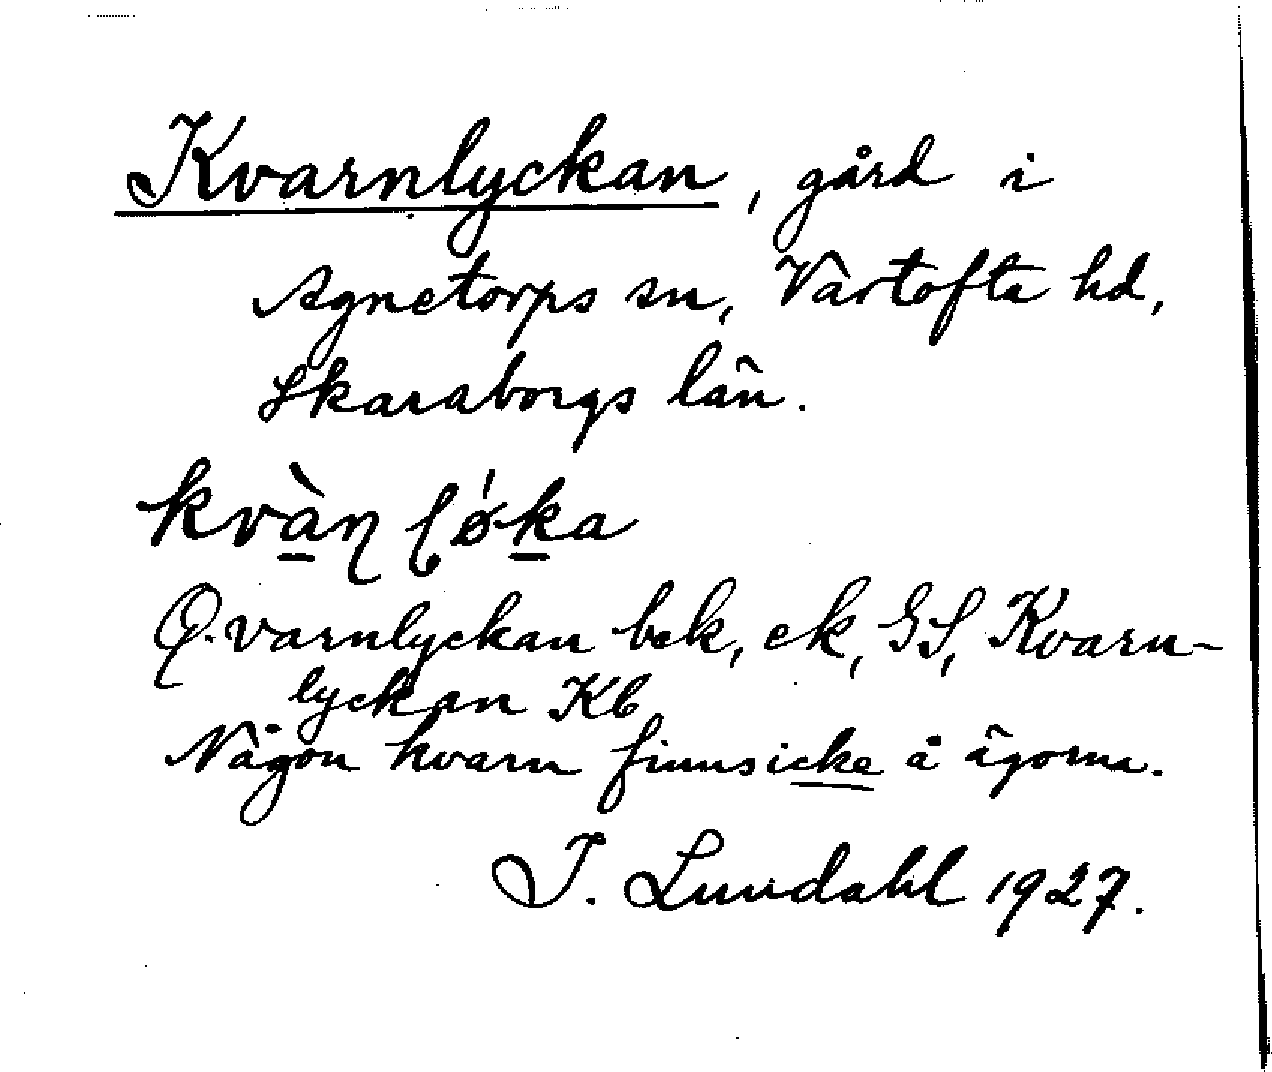 Kvarnlyckan, gård i
Agnetorps sn, Vartofta hd,
Skaraborgs län.
kvàn løka
Qvarnlyckan bek, ek, GS, Kvarn-
lyckan Kb
Någon kvarn finns icke å ägorna.
I. Lundahl 1927.